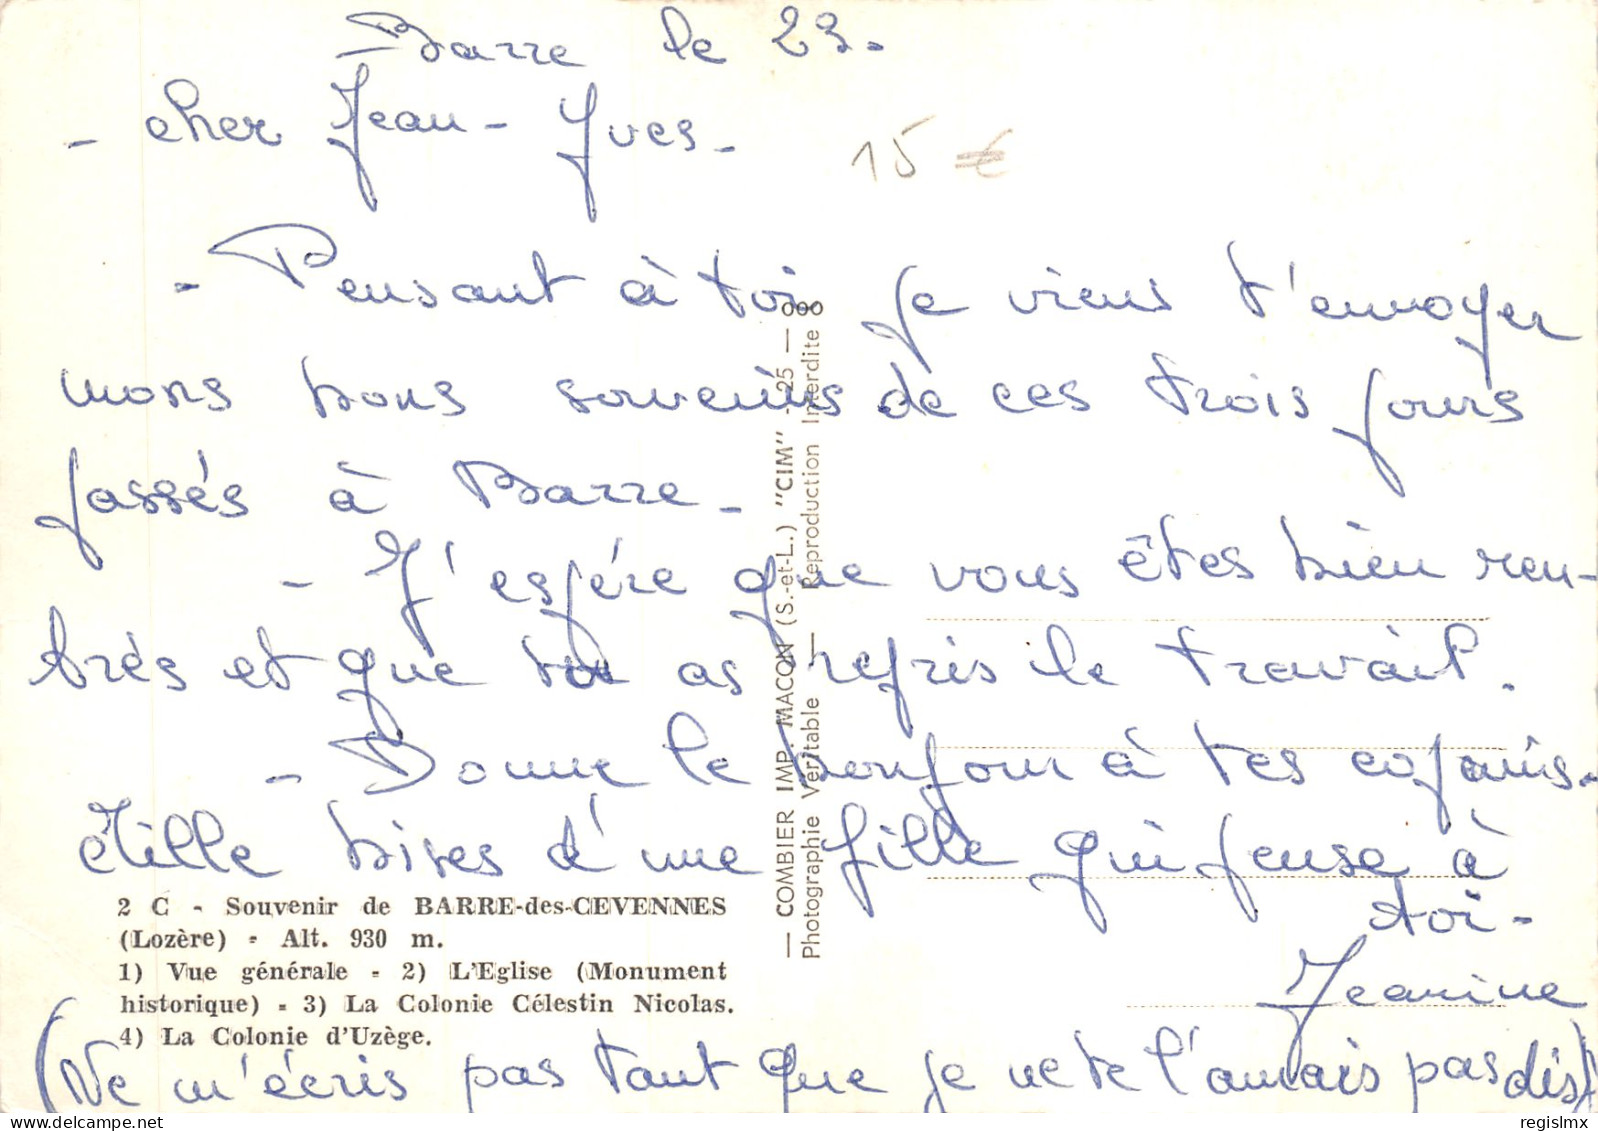 Barre le 23.
- cher Jean-Yves -
15 €
- Pensant à toi je viens t'envoyer
mons bons souvenirs de ces trois jours
passés à Barre -
- J'espére que vous êtes bien ren-
trés et que tu as repris le travail.
- Donne le bonjour à tes copains -
et mille bises d'une fille qui pense à
toi -
Jeanine
(Ne m'écris pas tant que je ne te l'aurais pas dis)
2 C - Souvenir de BARRE-des-CEVENNES
(Lozère) - Alt. 930 m.
1) Vue générale - 2) L'Eglise (Monument
historique) - 3) La Colonie Célestin Nicolas.
4) La Colonie d'Uzège.
— COMBIER IMP. MACON (S.-et-L.) "CIM" - 25 —
Photographie Véritable — Reproduction Interdite
regislmx